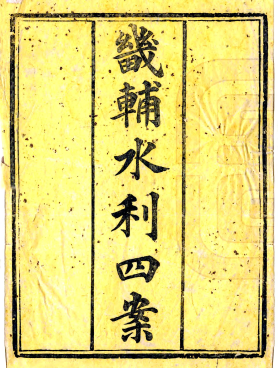 畿輔水利四案